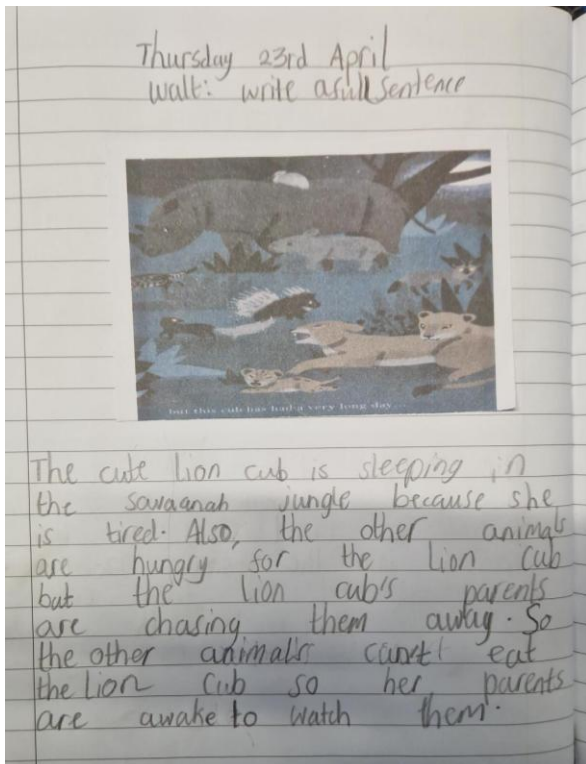 Thursday 23rd April
walt: write a full sentence
but this cub has had a very long day...
The cute lion cub is sleeping in
the savaanah jungle because she
is tired. Also, the other animals
are hungry for the lion cub
but the lion cub's parents
are chasing them away. So
the other animals can't eat
the Lion cub so her parents
are awake to watch them.